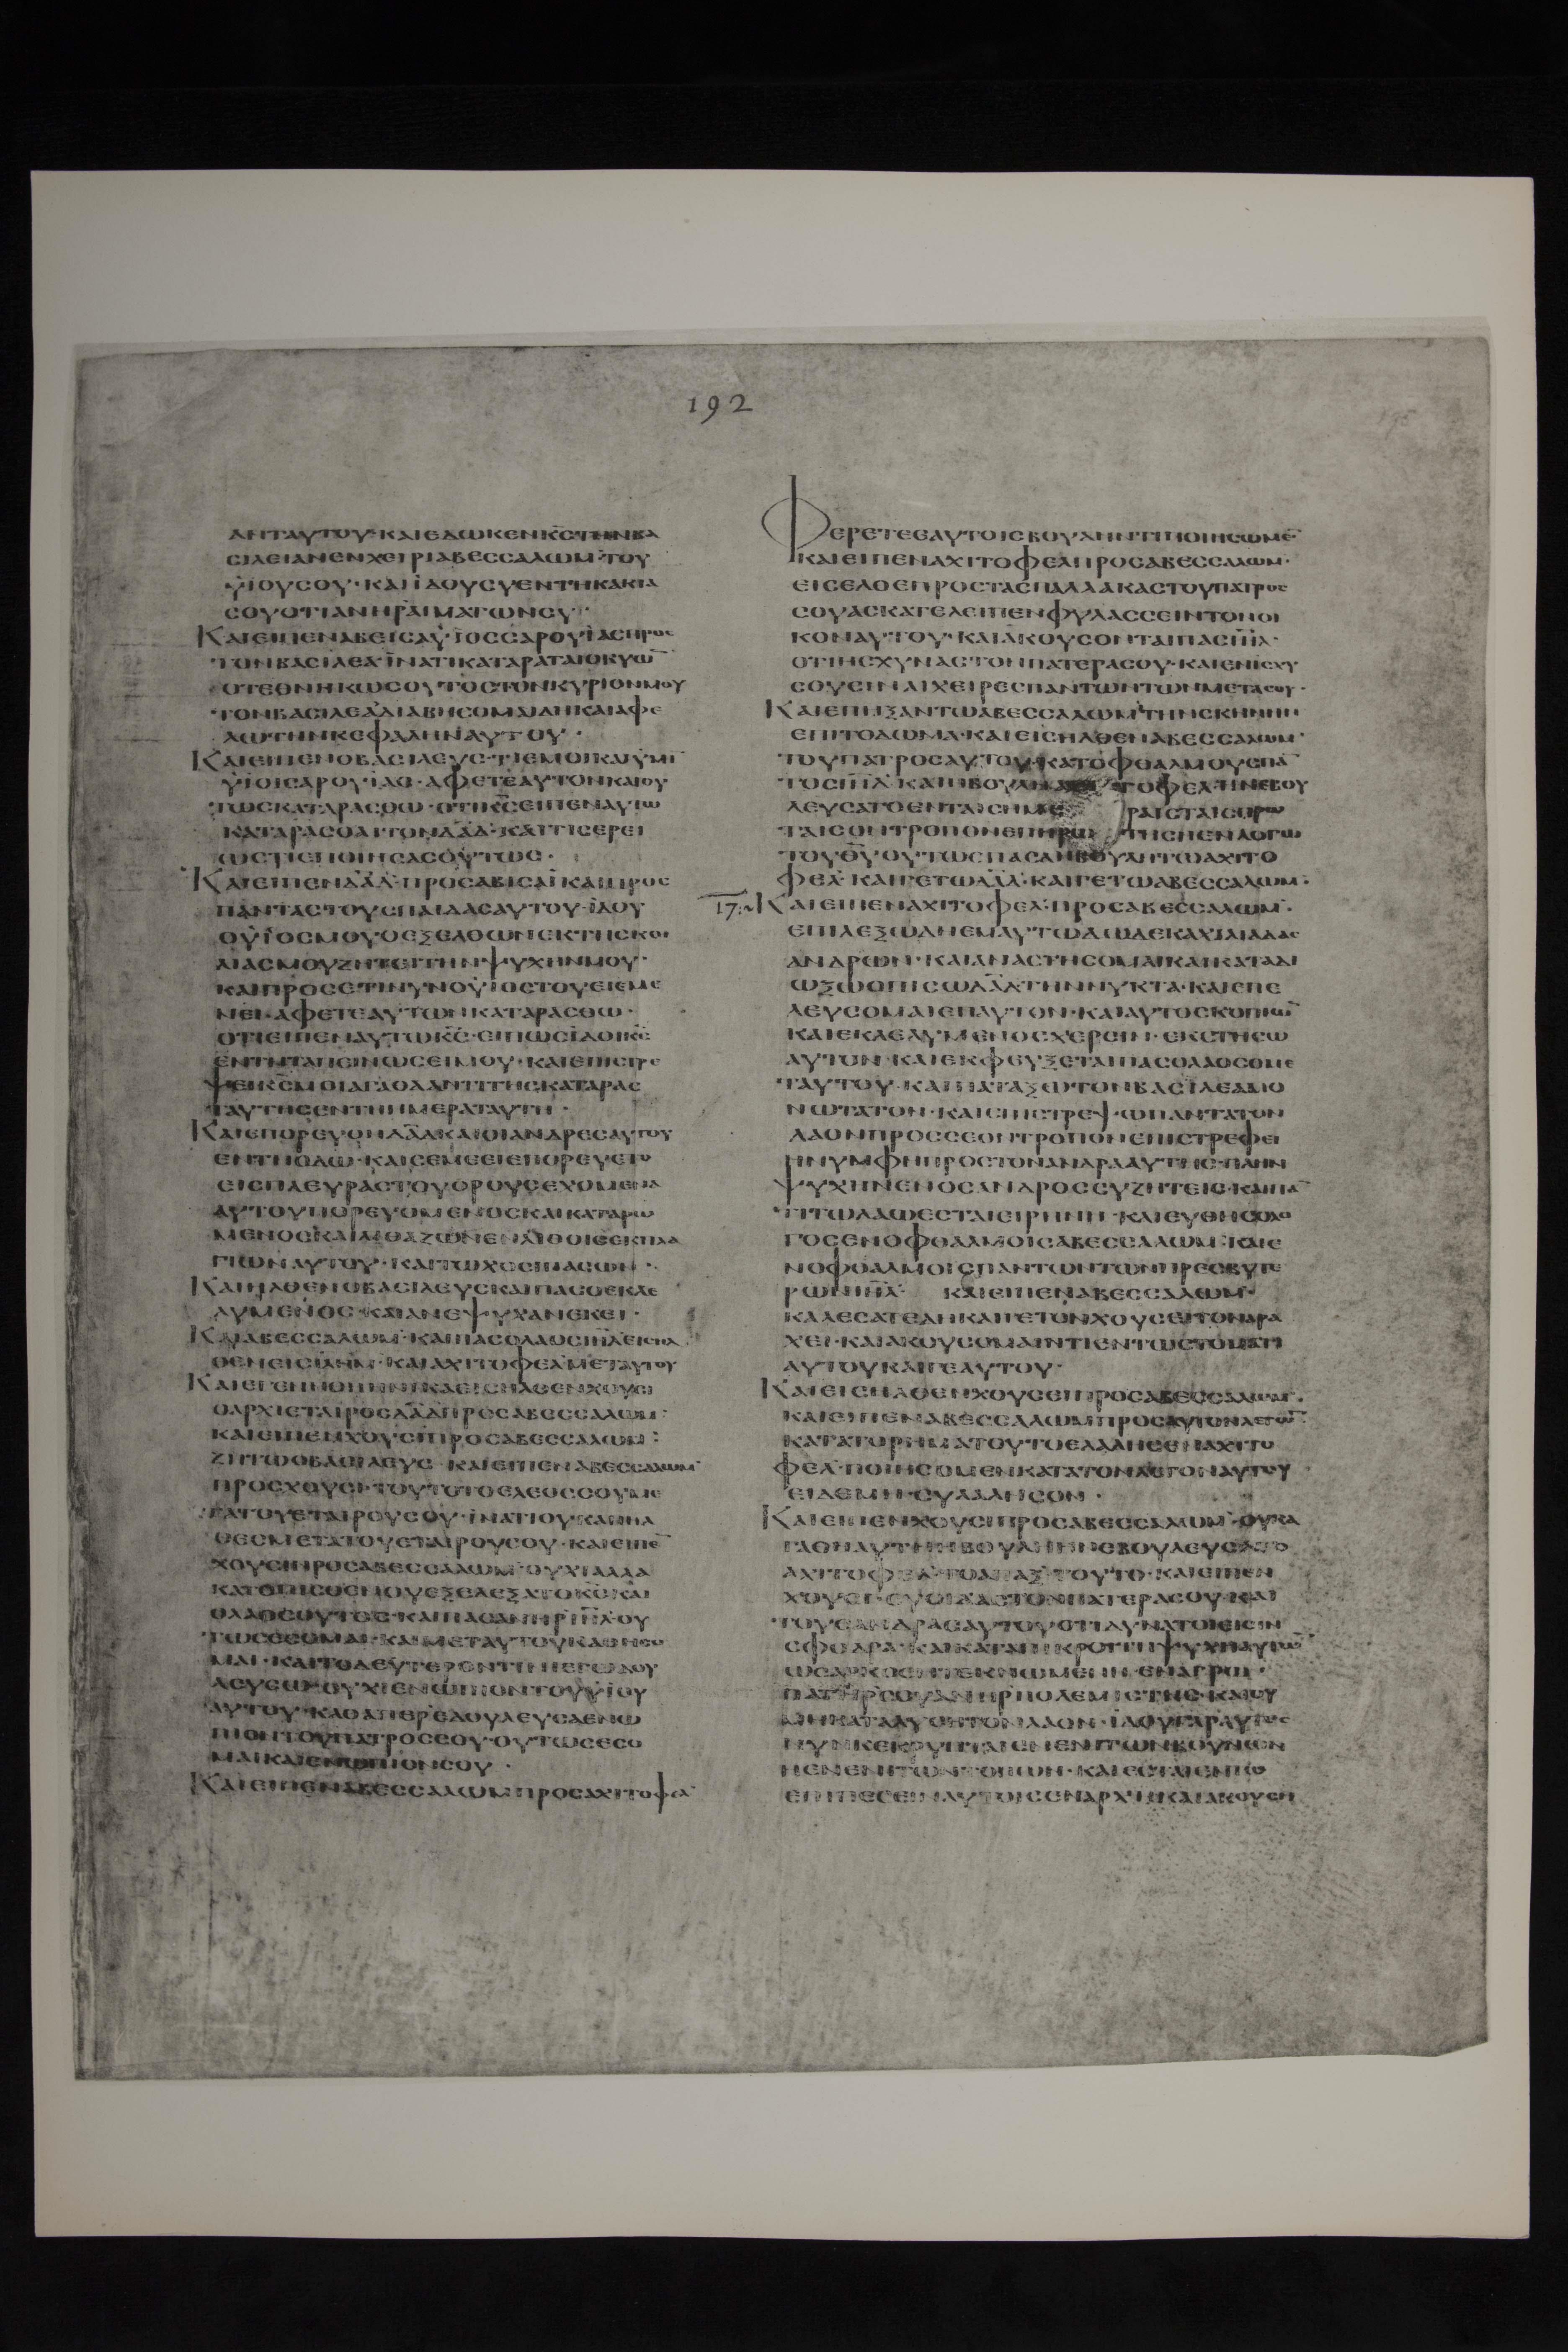 192
ΑΝΤΑΥΤΟΥ·ΚΑΙΕΔΩΚΕΝΚ̅Σ̅ΤΗΝΒΑ
ΣΙΛΕΙΑΝΕΝΧΕΙΡΙΑΒΕΣΣΑΛΩΜ·ΤΟΥ
ΥΙΟΥΣΟΥ·ΚΑΙΪΔΟΥΣΥΕΝΤΗΚΑΚΙΑ
ΣΟΥΟΤΙΑΝΗΡΑΙΜΑΤΩΝΣΥ·
ΚΑΙΕΙΠΕΝΑΒΕΙΣΑΥ·ΪΟΣΣΑΡΟΥΪΑΣΠΡΟΣ
ΤΟΝΒΑΣΙΛΕΑ·ΪΝΑΤΙΚΑΤΑΡΑΤΑΙΟΚΥΩ̅
ΟΤΕΘΝΗΚΩΣΟΥΤΟΣΤΟΝΚΥΡΙΟΝΜΟΥ
ΤΟΝΒΑΣΙΛΕΑΔΙΑΒΗΣΟΜΑΙΔΗΚΑΙΑΦΕ
ΛΩΤΗΝΚΕΦΑΛΗΝΑΥΤΟΥ·
ΚΑΙΕΙΠΕΝΟΒΑΣΙΛΕΥΣ·ΤΙΕΜΟΙΚΑΙΫΜΙ̅
ΫΙΟΙΣΑΡΟΥΪΑΘ·ΑΦΕΤΕΑΥΤΟΝΚΑΙΟΥ
ΤΩΣΚΑΤΑΡΑΣΘΩ·ΟΤΙΚ̅Σ̅ΕΙΠΕΝΑΥΤΩ
ΚΑΤΑΡΑΣΘΑΙΤΟΝΔ̅Α̅Δ̅·ΚΑΙΤΙΣΕΡΕΙ
ΩΣΤΙΕΠΟΙΗΣΑΣΟΥΤΩΣ·
ΚΑΙΕΙΠΕΝΔ̅Α̅Δ̅·ΠΡΟΣΑΒΙΣΑΪΚΑΙΠΡΟΣ
ΠΑΝΤΑΣΤΟΥΣΠΑΙΔΑΣΑΥΤΟΥ·ΪΔΟΥ
ΟΫΙΟΣΜΟΥΟΕΞΕΛΘΩΝΕΚΤΗΣΚΟΙ
ΛΙΑΣΜΟΥΖΗΤΕΙΤΗΝΨΥΧΗΝΜΟΥ·
ΚΑΙΠΡΟΣΕΤΙΝΥΝΟΫΙΟΣΤΟΥΕΙΕΜΕ
ΝΕΙ·ΑΦΕΤΕΑΥΤΟΝΚΑΤΑΡΑΣΘΩ·
ΟΤΙΕΙΠΕΝΑΥΤΩΚ̅Σ̅·ΕΙΠΩΣΪΔΟΙΚ̅Σ̅
ΕΝΤΗΤΑΠΕΙΝΩΣΕΙΜΟΥ·ΚΑΙΕΠΙΣΤΡΕ
ΨΕΙΚ̅Σ̅ΜΟΙΑΓΑΘΑΑΝΤΙΤΗΣΚΑΤΑΡΑΣ
ΤΑΥΤΗΣΕΝΤΗΗΜΕΡΑΤΑΥΤΗ·
ΚΑΙΕΠΟΡΕΥΘΗΔ̅Α̅Δ̅ΚΑΙΟΙΑΝΔΡΕΣΑΥΤΟΥ
ΕΝΤΗΟΔΩ·ΚΑΙΣΕΜΕΕΙΕΠΟΡΕΥΕΤΟ
ΕΙΣΠΛΕΥΡΑΣΤΟΥΟΡΟΥΣΕΧΟΜΕΝΑ
ΑΥΤΟΥΠΟΡΕΥΟΜΕΝΟΣΚΑΙΚΑΤΑΡΩ
ΜΕΝΟΣΚΑΙΛΙΘΑΖΩΝΕΝΛΙΘΟΙΣΕΚΠΛΑ
ΓΙΩΝΑΥΤΟΥ·ΚΑΙΤΩΧΟΕΙΠΑΣΩΝ·
ΚΑΙΗΛΘΕΝΟΒΑΣΙΛΕΥΣΚΑΙΠΑΣΟΕΚΛΕ
ΛΥΜΕΝΟΣ·ΚΑΙΑΝΕΨΥΧΑΝΕΚΕΙ·
ΚΑΙΑΒΕΣΣΑΛΩΜ·ΚΑΙΠΑΣΟΛΑΟΣΙ̅Η̅Λ̅ΕΙΣΗΛ
ΘΕΝΕΙΣΙ̅Λ̅Η̅Μ̅·ΚΑΙΑΧΙΤΟΦΕΛ·ΜΕΤΑΥΤΟΥ
ΚΑΙΕΓΕΝΗΘΗΗΝΙΚΑΕΙΣΗΛΘΕΝΧΟΥΣΙ
ΟΑΡΧΙΕΤΑΙΡΟΣΔ̅Α̅Δ̅ΠΡΟΣΑΒΕΣΣΑΛΩΜ·
ΚΑΙΕΙΠΕΝΧΟΥΣΙΠΡΟΣΑΒΕΣΣΑΛΩΜ·
ΖΗΤΩΟΒΑΣΙΛΕΥΣ ΚΑΙΕΙΠΕΝΑΒΕΣΣΑΛΩΜ
ΠΡΟΣΧΟΥΣΙ·ΤΟΥΤΟΤΟΕΛΕΟΣΣΟΥΜΕ
ΤΑΤΟΥΕΤΑΙΡΟΥΣΟΥ·ΪΝΑΤΙΟΥΚΑΠΗΛ
ΘΕΣΜΕΤΑΤΟΥΕΤΑΙΡΟΥΣΟΥ·ΚΑΙΕΙΠΕ̅
ΧΟΥΣΕΙΠΡΟΣΑΒΕΣΣΑΛΩΜ·ΟΥΧΙΑΛΛΑ
ΚΑΤΟΠΙΣΘΕΝΟΥΕΞΕΛΕΞΑΤΟΚ̅Σ̅ΚΑΙ
ΟΛΑΟΣΟΥΤΟΣ·ΚΑΙΠΑΣΑΝΗΡΙ̅Η̅Λ̅ΟΥ
ΤΩΣΕΣΟΜΑΙ·ΚΑΙΜΕΤΑΥΤΟΥΚΑΘΗΣΟ
ΜΑΙ·ΚΑΙΤΟΔΕΥΤΕΡΟΝΤΙΝΙΕΓΩΔΟΥ
ΛΕΥΣΩΟΥΧΙΕΝΩΠΙΟΝΤΟΥΫΙΟΥ
ΑΥΤΟΥ·ΚΑΘΑΠΕΡΕΔΟΥΛΕΥΣΑΕΝΩ
ΠΙΟΝΤΟΥΠΑΤΡΟΣΣΟΥ·ΟΥΤΩΣΕΣΟ
ΜΑΙΚΑΙΕΝΩΠΙΟΝΣΟΥ·
ΚΑΙΕΙΠΕΝΑΒΕΣΣΑΛΩΜΠΡΟΣΑΧΙΤΟΦΕΛ
ΦΕΡΕΤΕΕΑΥΤΟΙΣΒΟΥΛΗΝΤΙΠΟΙΗΣΩΜΕ̅
ΚΑΙΕΙΠΕΝΑΧΙΤΟΦΕΛΠΡΟΣΑΒΕΣΣΑΛΩΜ·
ΕΙΣΕΛΘΕΠΡΟΣΤΑΣΠΑΛΛΑΚΑΣΤΟΥΠΑΤΡΟΣ
ΣΟΥΑΣΚΑΤΕΛΕΙΠΕΝΦΥΛΑΣΣΕΙΝΤΟΝΟΙ
ΚΟΝΑΥΤΟΥ·ΚΑΙΑΚΟΥΣΟΝΤΑΙΠΑΣΙ̅Η̅Λ̅·
ΟΤΙΗΣΧΥΝΑΣΤΟΝΠΑΤΕΡΑΣΟΥ·ΚΑΙΕΝΙΣΧΥ
ΣΟΥΣΙΝΑΙΧΕΙΡΕΣΠΑΝΤΩΝΤΩΝΜΕΤΑΣΟΥ·
ΚΑΙΕΠΗΞΑΝΤΩΑΒΕΣΣΑΛΩΜΤΗΝΣΚΗΝΗΝ
ΕΠΙΤΟΔΩΜΑ·ΚΑΙΕΙΣΗΛΘΕΝΑΒΕΣΣΑΛΩΜ·
ΤΟΥΠΑΤΡΟΣΑΥΤΟΥ·ΚΑΤΟΦΘΑΛΜΟΥΣΠΑ̅
ΤΟΣΙ̅Η̅Λ̅·ΚΑΙΗΒΟΥΛΗΑ ΤΟΦΕΛΗΝΕΒΟΥ
ΛΕΥΣΑΤΟΕΝΤΑΙΣΗΜΕ ΡΑΙΣΤΑΙΣΠΡΩ
ΤΑΙΣΟΝΤΡΟΠΟΝΕΠΗΡΩΤΗΣΗΕΝΛΟΓΩ
ΤΟΥΘ̅Υ̅ΟΥΤΩΣΠΑΣΑΗΒΟΥΛΗΤΩΑΧΙΤΟ
ΦΕΛ·ΚΑΙΓΕΤΩΔ̅Α̅Δ̅·ΚΑΙΓΕΤΩΑΒΕΣΣΑΛΩΜ·
17:~ ΚΑΙΕΙΠΕΝΑΧΙΤΟΦΕΛ·ΠΡΟΣΑΒΕΣΣΑΛΩΜ·
ΕΠΙΛΕΞΩΔΗΕΜΑΥΤΩΔΩΔΕΚΑΧΙΛΙΑΔΑΣ
ΑΝΔΡΩΝ·ΚΑΙΑΝΑΣΤΗΣΟΜΑΙΚΑΙΚΑΤΑΔΙ
ΩΞΩΟΠΙΣΩΔ̅Α̅Δ̅ΤΗΝΝΥΚΤΑ·ΚΑΙΕΠΕ
ΛΕΥΣΟΜΑΙΕΠΑΥΤΟΝ·ΚΑΙΑΥΤΟΣΚΟΠΙΩ̅
ΚΑΙΕΚΛΕΛΥΜΕΝΟΣΧΕΡΣΙΝ·ΕΚΣΤΗΣΩ
ΑΥΤΟΝ·ΚΑΙΕΚΦΕΥΞΕΤΑΙΠΑΣΟΛΑΟΣΟΜΕ
ΤΑΥΤΟΥ·ΚΑΙΠΑΤΑΞΩΤΟΝΒΑΣΙΛΕΑΜΟ
ΝΩΤΑΤΟΝ·ΚΑΙΕΠΙΣΤΡΕΨΩΠΑΝΤΑΤΟΝ
ΛΑΟΝΠΡΟΣΣΕΟΝΤΡΟΠΟΝΕΠΙΣΤΡΕΦΕΙ
ΗΝΥΜΦΗΠΡΟΣΤΟΝΑΝΔΡΑΑΥΤΗΣ·ΠΛΗΝ
ΨΥΧΗΝΕΝΟΣΑΝΔΡΟΣΣΥΖΗΤΕΙΣ·ΚΑΙΠΑ̅
ΤΙΤΩΛΑΩΕΣΤΑΙΕΙΡΗΝΗ·ΚΑΙΕΥΘΗΣΟΛΟ
ΓΟΣΕΝΟΦΘΑΛΜΟΙΣΑΒΕΣΣΑΛΩΜ·ΚΑΙΕ
ΝΟΦΘΑΛΜΟΙΣΠΑΝΤΩΝΤΩΝΠΡΕΣΒΥΤΕ
ΡΩΝΙ̅Η̅Λ̅· ΚΑΙΕΙΠΕΝΑΒΕΣΣΑΛΩΜ·
ΚΑΛΕΣΑΤΕΔΗΚΑΙΓΕΤΟΝΧΟΥΣΕΙΤΟΝΑΡΑ
ΧΕΙ·ΚΑΙΑΚΟΥΣΟΜΑΙΝΤΙΕΝΤΩΣΤΟΜΑΤΙ
ΑΥΤΟΥΚΑΙΓΕΑΥΤΟΥ·
ΚΑΙΕΙΣΗΛΘΕΝΧΟΥΣΕΙΠΡΟΣΑΒΕΣΣΑΛΩΜ·
ΚΑΙΕΙΠΕΝΑΒΕΣΣΑΛΩΜΠΡΟΣΑΥΤΟΝΛΕΓΩ̅
ΚΑΤΑΤΟΡΗΜΑΤΟΥΤΟΕΛΑΛΗΣΕΝΑΧΙΤΟ
ΦΕΛ·ΠΟΙΗΣΟΜΕΝΚΑΤΑΤΟΝΛΟΓΟΝΑΥΤΟΥ
ΕΙΔΕΜΗ·ΣΥΛΑΛΗΣΟΝ·
ΚΑΙΕΙΠΕΝΧΟΥΣΙΠΡΟΣΑΒΕΣΣΑΛΩΜ·ΟΥΚΑ
ΓΑΘΗΑΥΤΗΗΒΟΥΛΗΗΝΕΒΟΥΛΕΥΣΑΤΟ
ΑΧΙΤΟΦΕΛ·ΤΟΑΠΑΞΤΟΥΤΟ·ΚΑΙΕΙΠΕΝ
ΧΟΥΣΙ·ΣΥΟΙΔΑΣΤΟΝΠΑΤΕΡΑΣΟΥ·ΚΑΙ
ΤΟΥΣΑΝΔΡΑΣΑΥΤΟΥΟΤΙΔΥΝΑΤΟΙΕΙΣΙΝ
ΣΦΟΔΡΑ·ΚΑΙΚΑΤΑΠΙΚΡΟΙΤΗΨΥΧΗΑΥΤΩ̅
ΩΣΑΡΚΟΣΗΤΕΚΝΩΜΕΝΗ·ΕΝΑΓΡΩ·
ΠΑΤΗΡΣΟΥΑΝΗΡΠΟΛΕΜΙΣΤΗΣ·ΚΑΙΟΥ
ΜΗΚΑΤΑΛΥΟΝΤΟΝΛΑΟΝ·ΪΔΟΥΓΑΡΑΥΤΟΣ
ΝΥΝΚΕΚΡΥΠΤΑΙΕΝΕΝΙΤΩΝΒΟΥΝΩΝ
ΗΕΝΕΝΙΤΩΝΤΟΠΩΝ·ΚΑΙΕΣΤΑΙΕΝΤΩ
ΕΠΙΠΕΣΕΙΝΑΥΤΟΙΣΕΝΑΡΧΗΚΑΙΑΚΟΥΣΗ